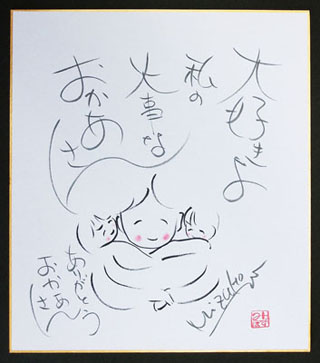 大好きよ
私の
大事な
おかあさん
ありがとう
おかあさん
Mizuho